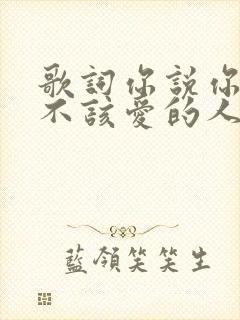 歌詞你說你
不該愛的人
藍領笑笑生